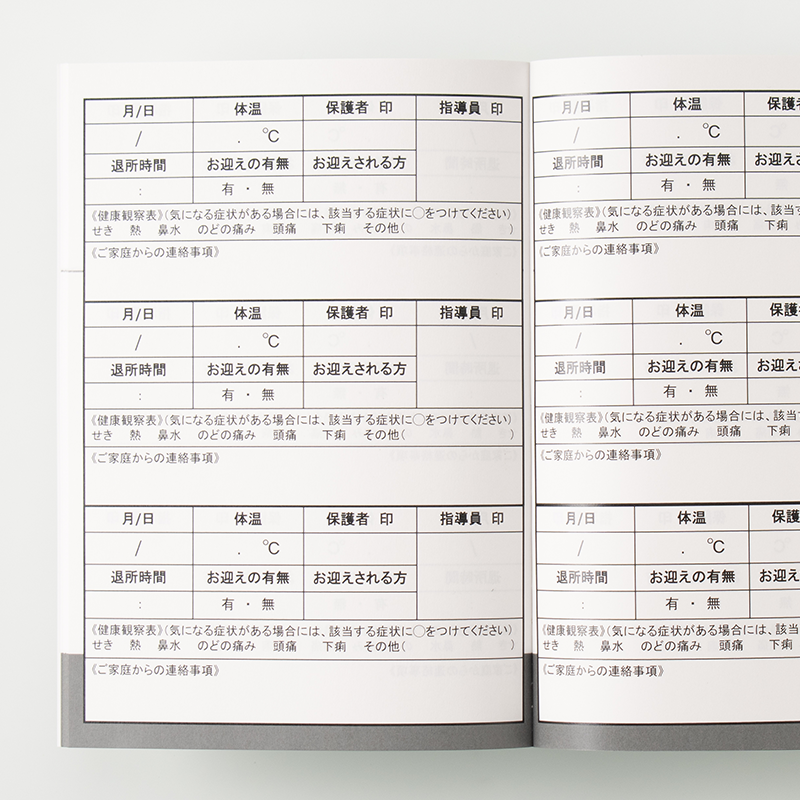 月/日 体温 保護者 印 指導員 印
/ . ℃
退所時間 お迎えの有無 お迎えされる方
: 有 ・ 無
《健康観察表》(気になる症状がある場合には、該当する症状に○をつけてください)
せき 熱 鼻水 のどの痛み 頭痛 下痢 その他( )
《ご家庭からの連絡事項》
月/日 体温 保護者 印 指導員 印
/ . ℃
退所時間 お迎えの有無 お迎えされる方
: 有 ・ 無
《健康観察表》(気になる症状がある場合には、該当する症状に○をつけてください)
せき 熱 鼻水 のどの痛み 頭痛 下痢 その他( )
《ご家庭からの連絡事項》
月/日 体温 保護者 印 指導員 印
/ . ℃
退所時間 お迎えの有無 お迎えされる方
: 有 ・ 無
《健康観察表》(気になる症状がある場合には、該当する症状に○をつけてください)
せき 熱 鼻水 のどの痛み 頭痛 下痢 その他( )
《ご家庭からの連絡事項》
月/日 体温 保護
/ . ℃
退所時間 お迎えの有無 お迎え
: 有 ・ 無
《健康観察表》(気になる症状がある場合には、該当する
せき 熱 鼻水 のどの痛み 頭痛 下痢
《ご家庭からの連絡事項》
月/日 体温 保護
/ . ℃
退所時間 お迎えの有無 お迎え
: 有 ・ 無
《健康観察表》(気になる症状がある場合には、該当
せき 熱 鼻水 のどの痛み 頭痛 下痢
《ご家庭からの連絡事項》
月/日 体温 保護
/ . ℃
退所時間 お迎えの有無 お迎え
: 有 ・ 無
《健康観察表》(気になる症状がある場合には、該当
せき 熱 鼻水 のどの痛み 頭痛 下痢
《ご家庭からの連絡事項》